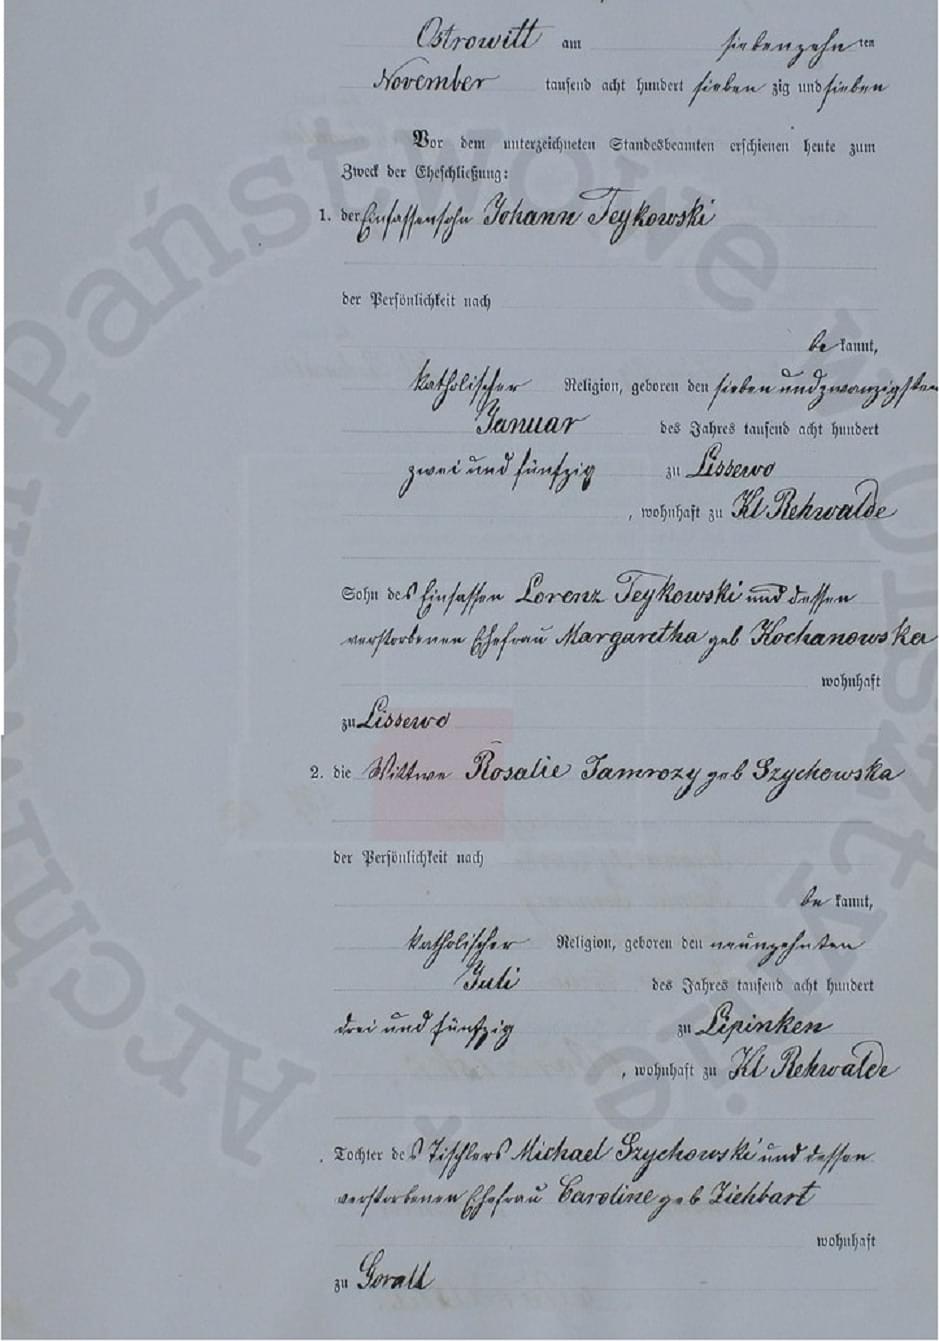 Ostrowitt am siebenzehnten
November tausend acht hundert siebenzig und sieben
Vor dem unterzeichneten Standesbeamten erschienen heute zum
Zweck der Eheschließung:
1. der Einsassensohn Johann Teykowski
der Persönlichkeit nach
bekannt,
katholischer Religion, geboren den sieben und zwanzigsten
Januar des Jahres tausend acht hundert
zwei und fünfzig zu Lissewo
, wohnhaft zu Kl Rehwalde
Sohn des Einsassen Lorenz Teykowski und dessen
verstorbenen Ehefrau Margaretha geb Kochanowska
wohnhaft
zu Lissewo
2. die Wittwe Rosalie Jamrozy geb Szychowska
der Persönlichkeit nach
bekannt,
katholischer Religion, geboren den neunzehnten
Juli des Jahres tausend acht hundert
drei und fünfzig zu Lipinken
, wohnhaft zu Kl Rehwalde
Tochter des Tischlers Michael Szychowski und dessen
verstorbenen Ehefrau Caroline geb Ziehbart
wohnhaft
zu Gorall
Archiwum Państwowe w Olsztynie